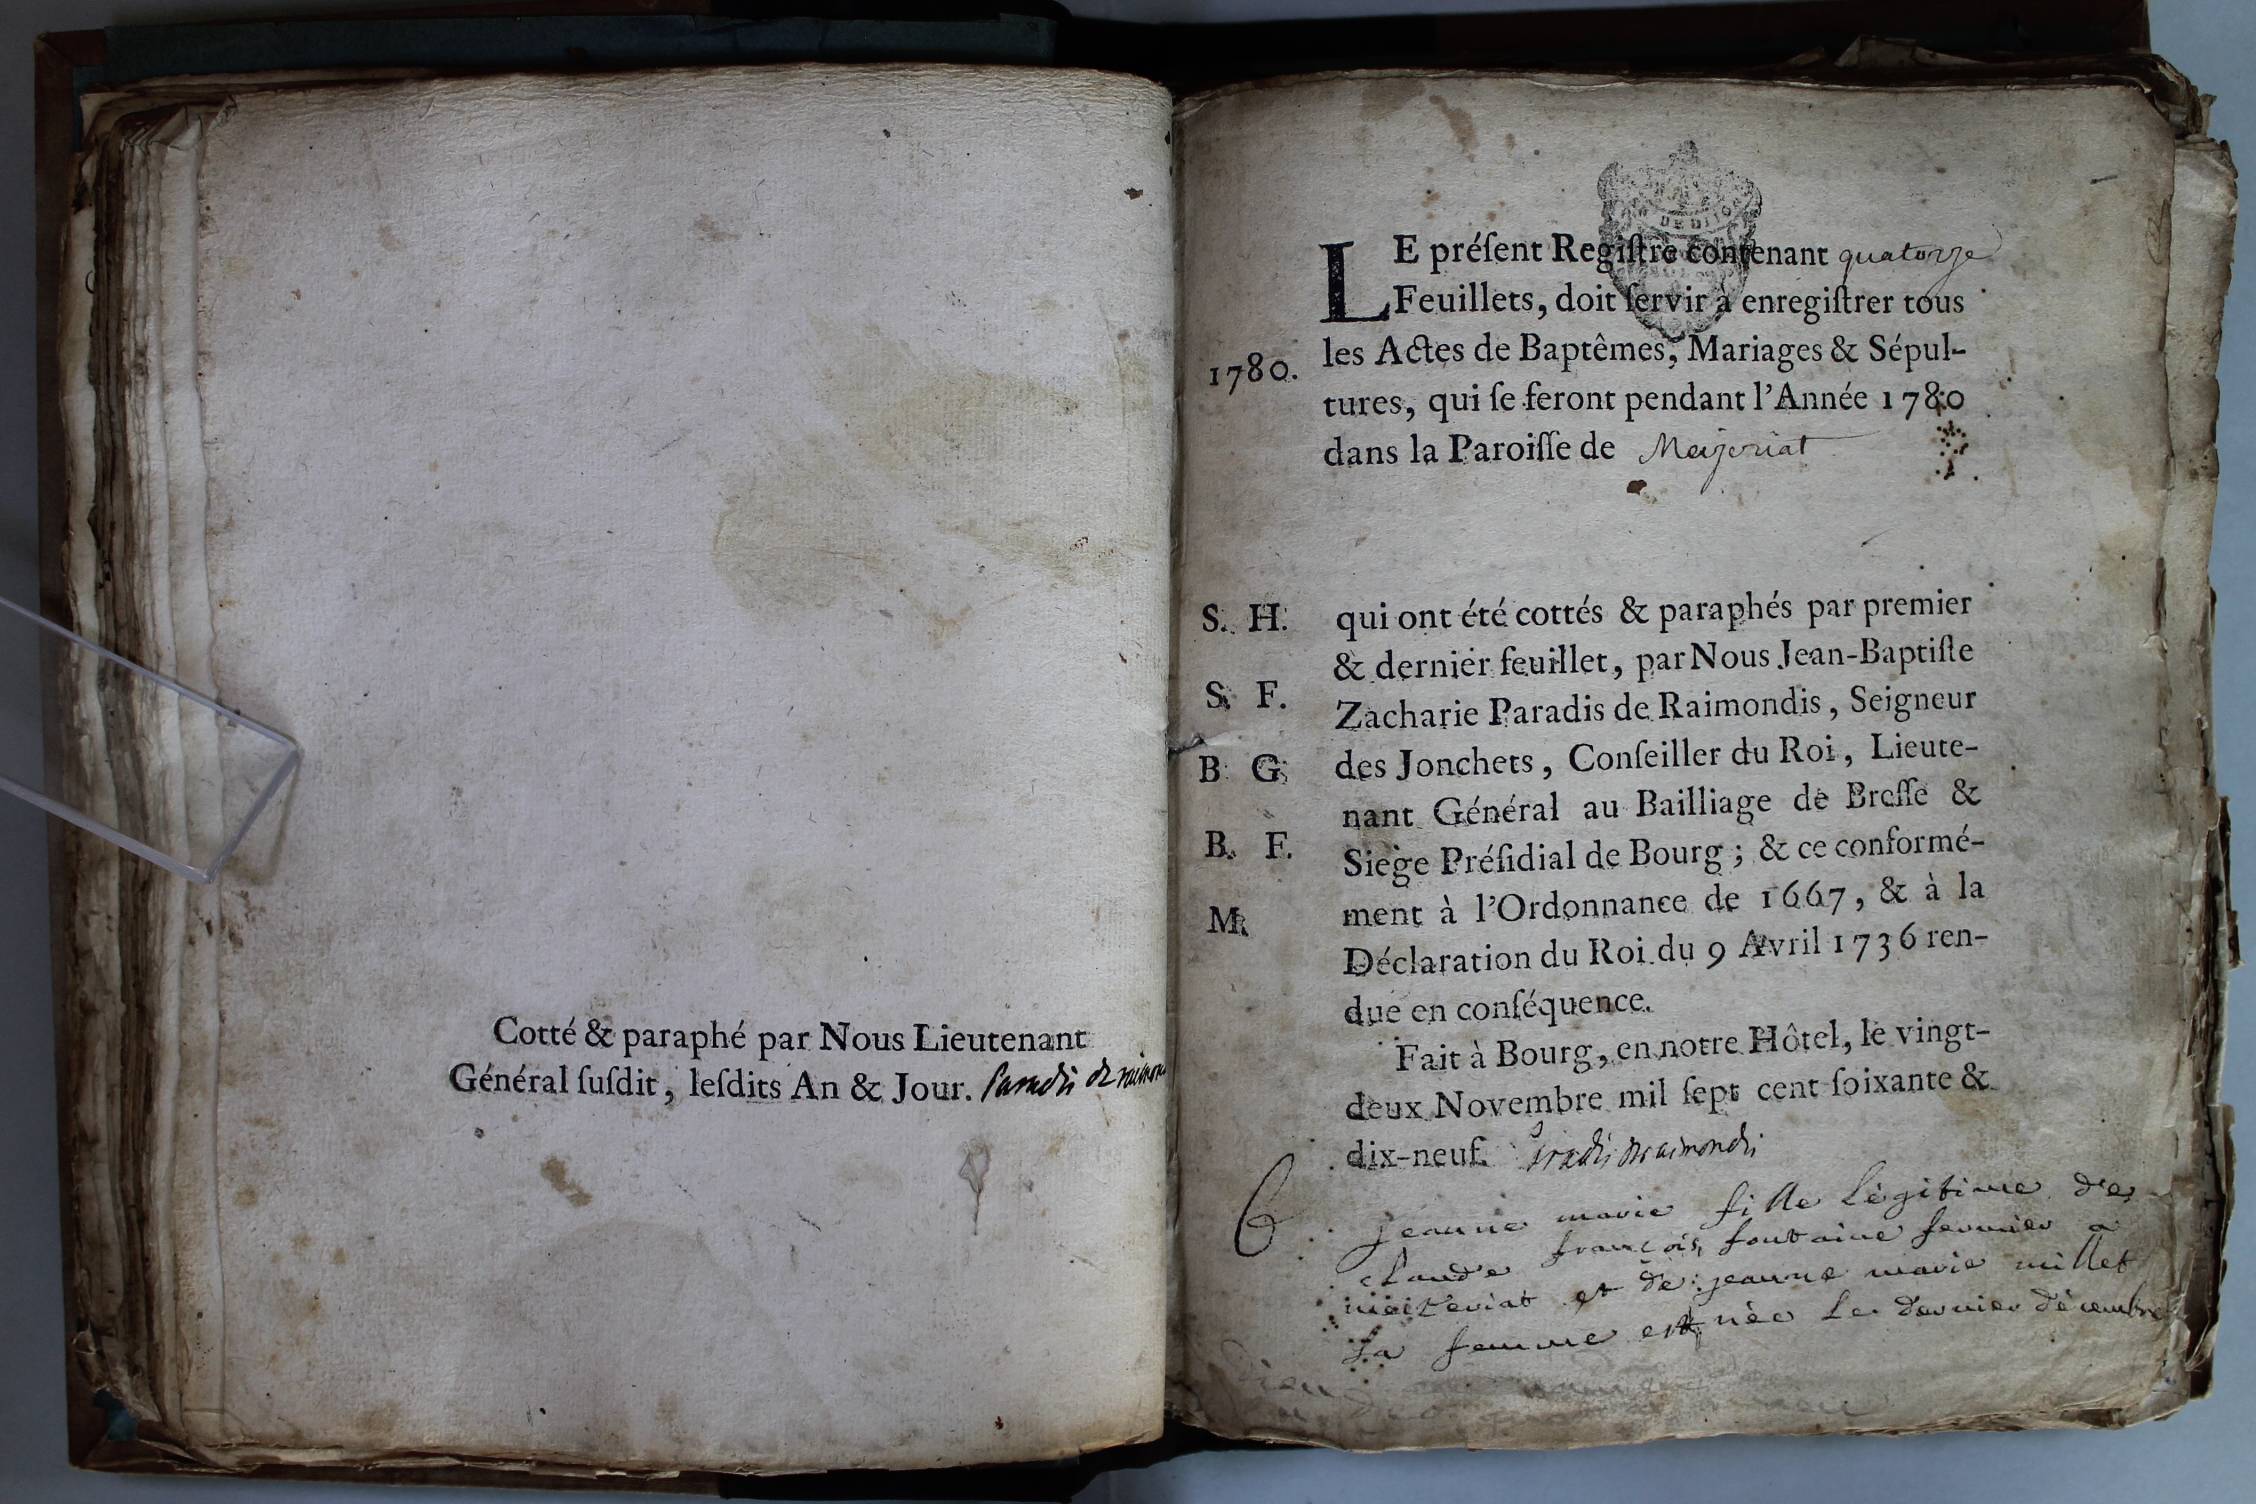 Cotté & paraphé par Nous Lieutenant
Général ſuſdit, leſdits An & Jour. Paradis de raimon
LE préſent Regiſtre contenant quatorze
Feuillets, doit ſervir à enregiſtrer tous
les Actes de Baptêmes, Mariages & Sépul-
1780.
tures, qui ſe feront pendant l'Année 1780
dans la Paroiſſe de Meizeriat
S. H. qui ont été cottés & paraphés par premier
& dernier feuillet, par Nous Jean-Baptiſte
S. F. Zacharie Paradis de Raimondis, Seigneur
B G. des Jonchets, Conſeiller du Roi, Lieute-
nant Général au Bailliage de Breſſe &
B. F. Siege Préſidial de Bourg; & ce conformé-
M. ment à l'Ordonnance de 1667, & à la
Déclaration du Roi du 9 Avril 1736 ren-
due en conſéquence.
Fait à Bourg, en notre Hôtel, le vingt-
deux Novembre mil ſept cent ſoixante &
dix-neuf. Paradis de raimondis
jeanne marie fille légitime de
claude françois fontaine fermier a
meizeriat et de jeanne marie millet
sa femme est née le dernier décembre